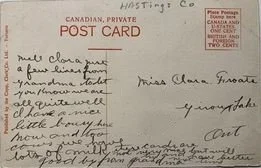 HAStings Co
CANADIAN, PRIVATE
POST CARD
Place Postage
Stamp here
CANADA AND
U-STATES
ONE CENT
BRITISH AND
FOREIGN
TWO CENTS
Published by the Corp. Clark Co. Ltd. - Toronto
Well Clara just
a few lines from
Grandma to let
you know we are
all quite well
I have a nice
little house here
now and you
come we
lots of milk
good by from grandma
Miss Clara
Lake
Ont